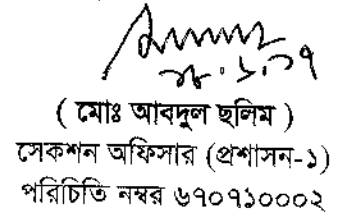 ( মোঃ আবদুল ছলিম )
সেকশন অফিসার (প্রশাসন-১)
পরিচিতি নম্বর ৬৭০৭১০০০২